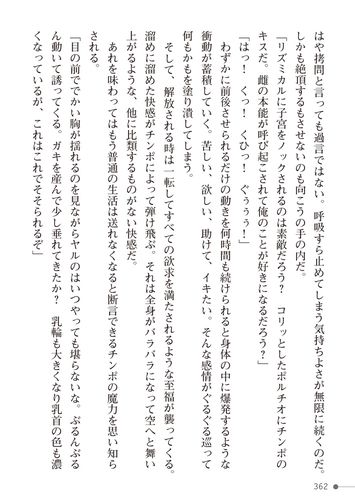 はや拷問と言っても過言ではない。呼吸すら止めてしまう気持ちよさが無限に続くのだ。
しかも絶頂するもさせないのも向こうの手の内だ。
「リズミカルに子宮をノックされるのは素敵だろう？　コリッとしたポルチオにチンポの
キスだ。雌の本能が呼び起こされて俺のことが好きになるだろう？」
「はっ！　くっ！　くひっ！　ぐぅぅぅ！」
わずかに前後させられるだけの動きを何時間も続けられると身体の中に爆発するような
衝動が蓄積していく。苦しい、欲しい、助けて、イキたい。そんな感情がぐるぐる巡って
何もかもを塗り潰してしまう。
そして、解放される時は一転してすべての欲求を満たされるような至福が襲ってくる。
溜めに溜めた快感がチンポによって弾け飛ぶ。それは全身がバラバラになって空へと舞い
上がるような、他に比類するものがない快感だ。
あれを味わってはもう普通の生活は送れなくなると断言できるチンポの魔力を思い知ら
される。
「目の前ででかい胸が揺れるのを見ながらヤルのはいつやっても堪らないな。ぷるんぷる
ん動いて誘ってくる。ガキを産んで少し垂れてきたか？　乳輪も大きくなり乳首の色も濃
くなっているが、これはこれでそそられるぞ」
362